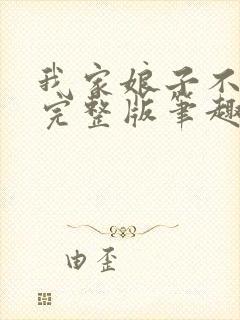 我家娘子不
完整版笔趣
由歪